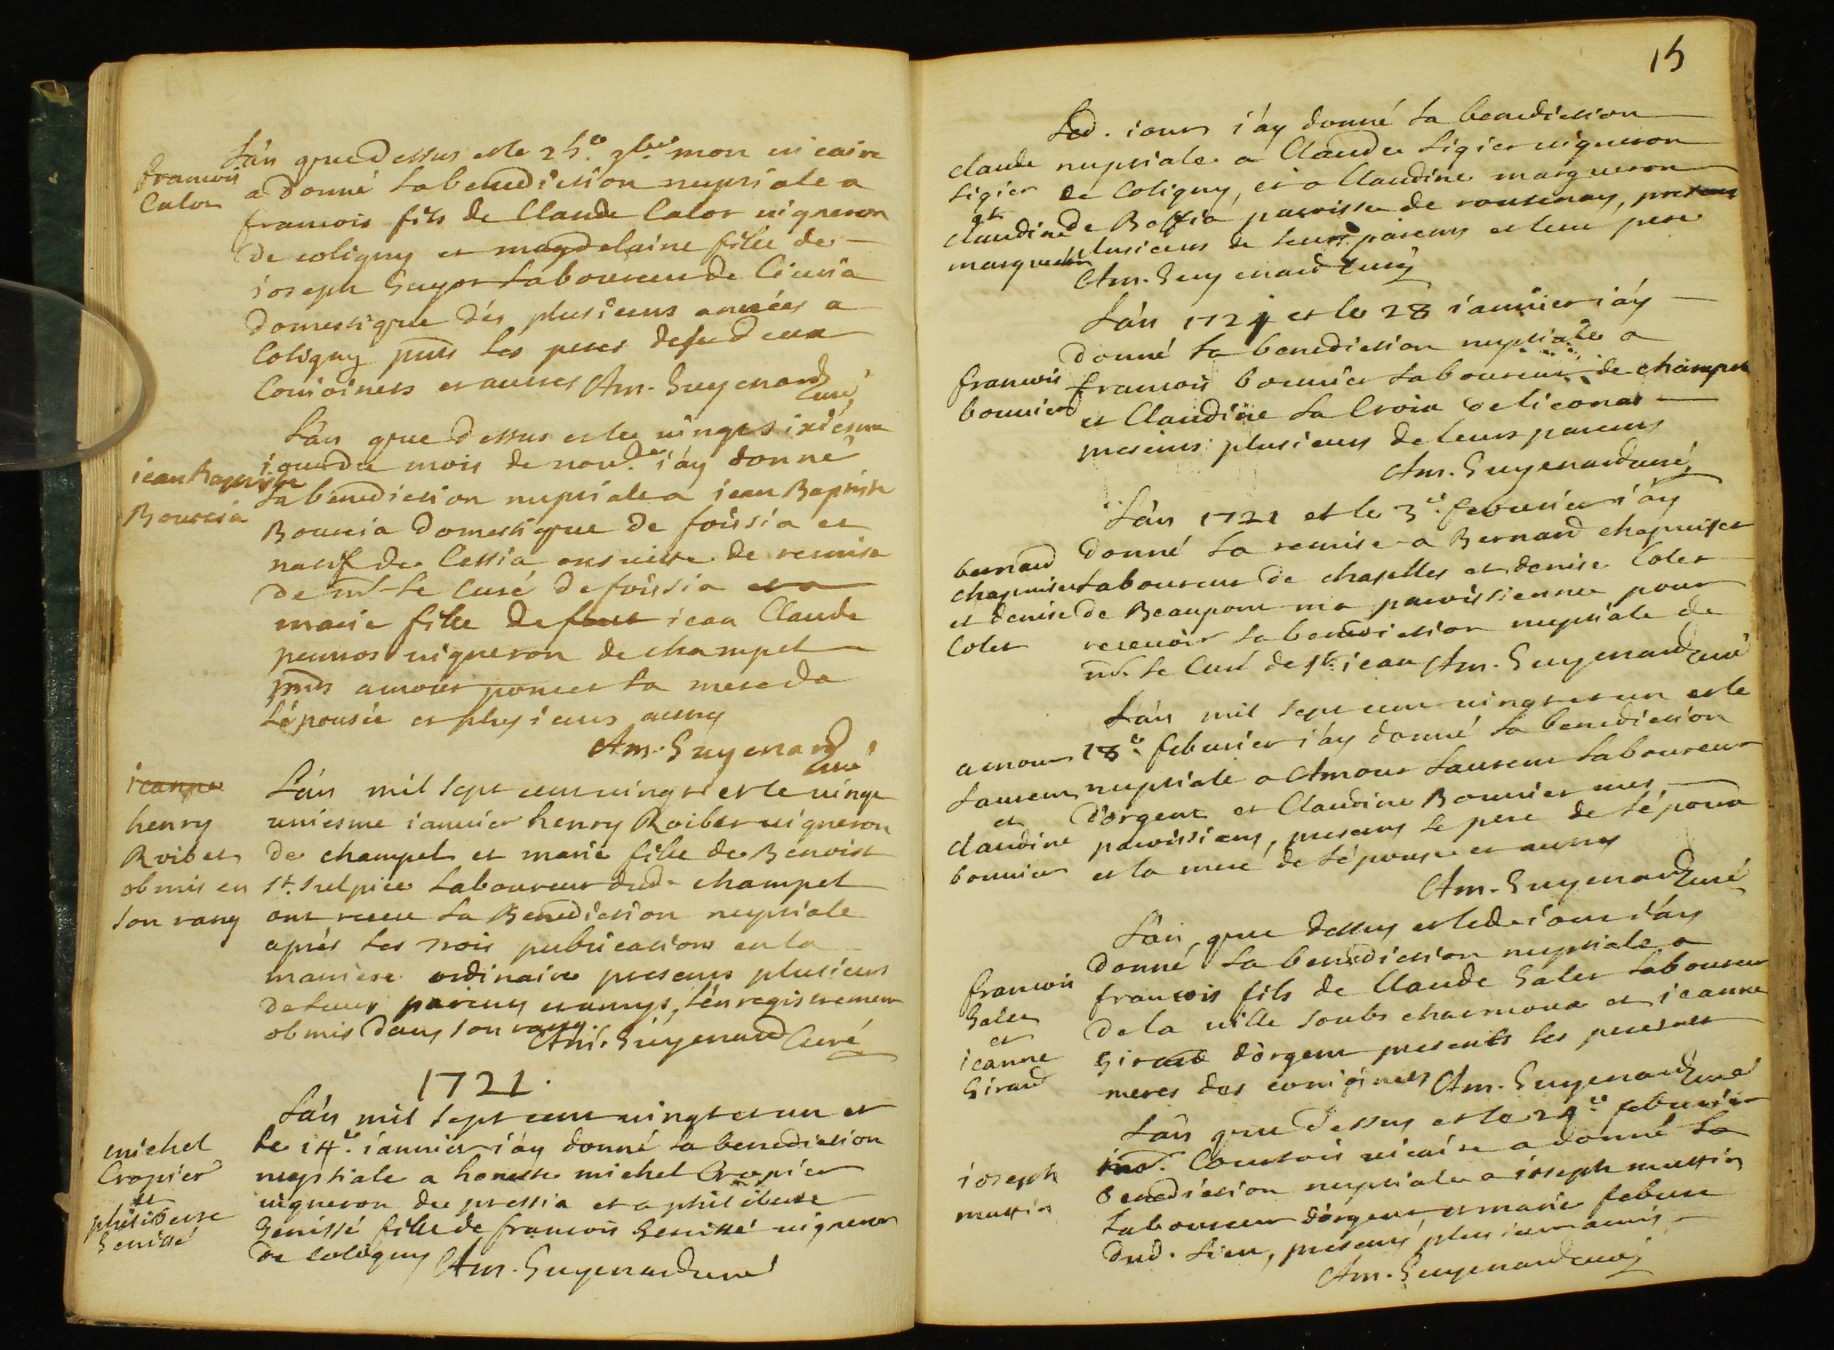 francois
Calor
L'an que dessus et le 25.e 9bre mon vicaire
a donné la benediction nuptiale a
francois fils de Claude Calor vigneron
de coligny et magdelaine fille de
joseph Guyot laboureur de Civria
domestique dés plusieurs années a
Coligny pnts les peres desd deux
Conioincts et autres Am. Guyenard
Curé
jean Baptiste
Bourcia
L'an que dessus et le vingt sixiesme
jour du mois de nov.bre i'ay donné
la benediction nuptiale a jean Baptiste
Bourcia domestique de foissia et
natif de Cessia ensuitte de remise
de mr le Curé de foissia et a
marie fille de feu jean Claude
vigneron de champel
pnts amour poncet la mere de
l'épousée et plusieurs autres
Am. Guyenard
curé
jeanne
henry
Roibet
obmis en
son rang
L'an mil sept cent vingt et le vingt
uniesme janvier henry Roibet vigneron
de champel et marie fille de Benoist
St. Sulpice laboureur dud. champel
ont receu la Benediction nuptiale
aprés les trois publications en la
maniere ordinaire presents plusieurs
de leurs parents et amys, l'énregistrement
obmis dans son rang.
Am. Guyenard Curé
1721.
michel
Cropier
et
philiberte
Genissé
L'an mil sept cent vingt et un et
le 14.e janvier i'ay donné la benediction
nuptiale a honeste michel Cropier
vigneron de pressia et a philiberte
Genissé fille de francois Genissé vigneron
de coligny Am. Guyenard curé
15
claude
ligier
et
claudine
margueron
Led. jours i'ay donné la benediction
nuptiale a Claude Ligier vigneron
de Coligny, et a Claudine margueron
de Bossia paroisse de rousenay, presents
plusieurs de leurs parents et leur pere
Am. Guyenard Curé
francois
bonnier
L'an 1721 et le 28 janvier i'ay
donné la benediction nuptiale a
francois bonnier laboureur de champel
et Claudine la Croix de liconas
presents plusieurs de leurs parents
Am. Guyenard curé
bernard
chapuiset
et denise
Colet
L'an 1721 et le 3.e fevrier i'ay
donné la remise a Bernard chapuiset
laboureur de chaselles et denise Colet
de Beaupont ma paroissienne pour
recevoir la benediction nuptiale de
mr. le Curé de St. jean Am. Guyenard curé
amour
Laurent
et
claudine
bonnier
L'an mil sept cent vingt et un et le
18.e febvrier i'ay donné la benediction
nuptiale a Amour Laurent laboureur
d'orgent et Claudine Bonnier mes
paroissiens, presents le pere de l'époux
et la mere de l'épouse et autres
Am. Guyenard curé
francois
Galet
et
jeanne
Girard
L'an que dessus et led. jour i'ay
donné la benediction nuptiale a
francois fils de Claude Galet laboureur
de la ville soubs charmoux et jeanne
Girard d'orgent presents les peres et
meres des conioincts Am. Guyenard curé
joseph
muttin
L'an que dessus et le 24.e febvrier
mr. Courtois vicaire a donné la
Benediction nuptiale a joseph muttin
laboureur d'orgent et marie febure
dud. lieu, presents plusieurs amis
Am. Guyenard curé